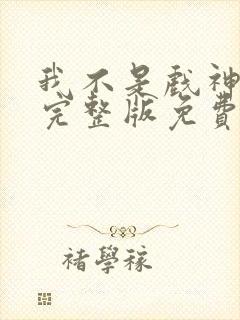 我不是戲神
完整版免費
褚學稼